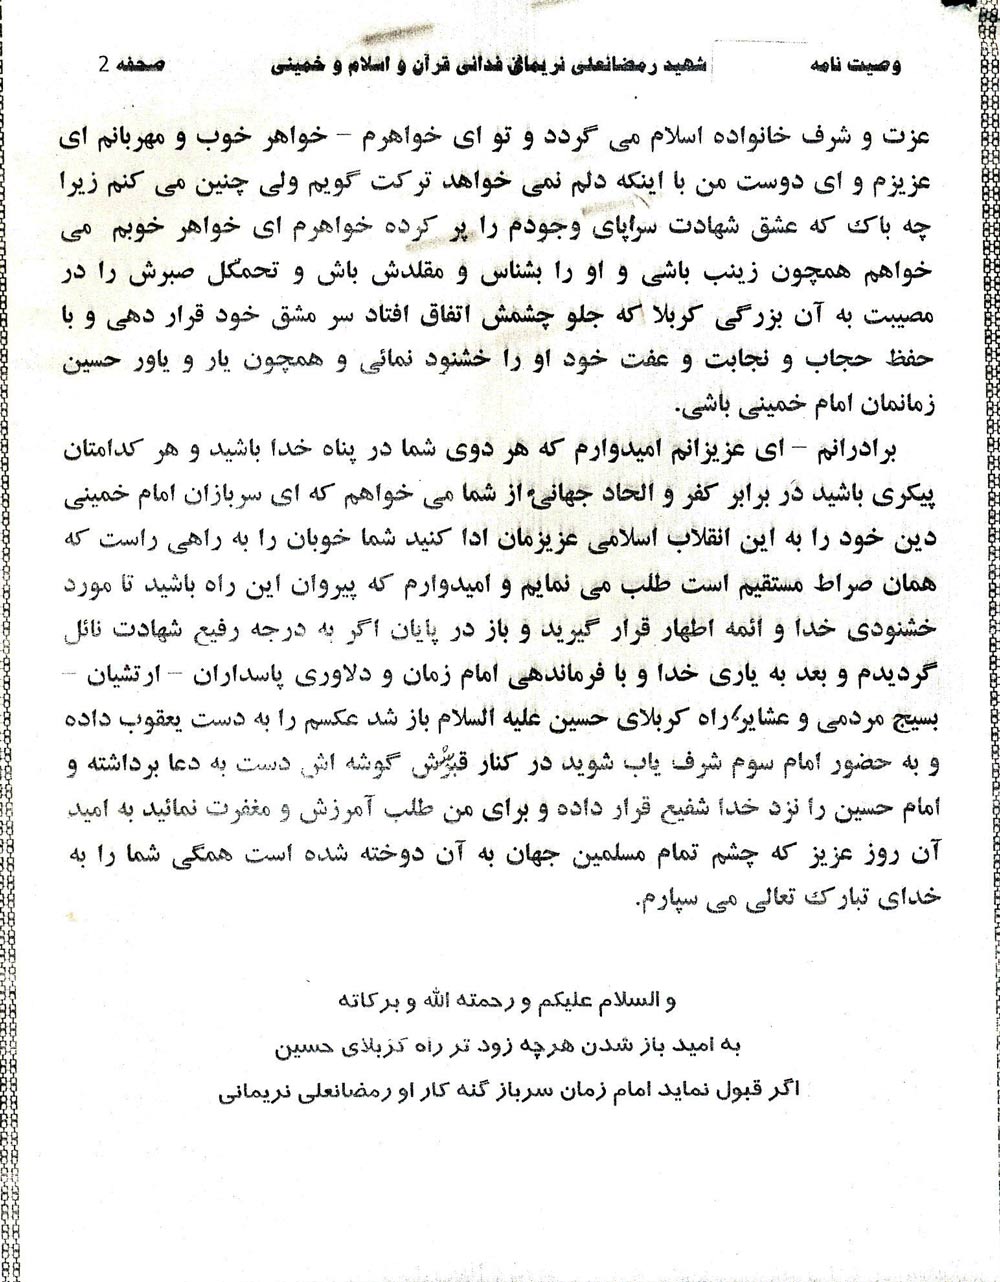 وصیت نامه شهید رمضانعلی نریمانی فدائی قرآن و اسلام و خمینی صحفه 2
عزت و شرف خانواده اسلام می گردد و تو ای خواهرم – خواهر خوب و مهربانم ای
عزیزم و ای دوست من با اینکه دلم نمی خواهد ترکت گویم ولی چنین می کنم زیرا
چه باک که عشق شهادت سراپای وجودم را پر کرده خواهرم ای خواهر خوبم می
خواهم همچون زینب باشی و او را بشناس و مقلدش باش و تحمگل صبرش را در
مصیبت به آن بزرگی کربلا که جلو چشمش اتفاق افتاد سر مشق خود قرار دهی و با
حفظ حجاب و نجابت و عفت خود او را خشنود نمائی و همچون یار و یاور حسین
زمانمان امام خمینی باشی.
برادرانم – ای عزیزانم امیدوارم که هر دوی شما در پناه خدا باشید و هر کدامتان
پیکری باشید در برابر کفر و الحاد جهانی از شما می خواهم که ای سربازان امام خمینی
دین خود را به این انقلاب اسلامی عزیزمان ادا کنید شما خوبان را به راهی راست که
همان صراط مستقیم است طلب می نمایم و امیدوارم که پیروان این راه باشید تا مورد
خشنودی خدا و ائمه اطهار قرار گیرید و باز در پایان اگر به درجه رفیع شهادت نائل
گردیدم و بعد به یاری خدا و با فرماندهی امام زمان و دلاوری پاسداران – ارتشیان –
بسیج مردمی و عشایر راه کربلای حسین علیه السلام باز شد عکسم را به دست یعقوب داده
و به حضور امام سوم شرف یاب شوید در کنار قبرش گوشه اش دست به دعا برداشته و
امام حسین را نزد خدا شفیع قرار داده و برای من طلب آمرزش و مغفرت نمائید به امید
آن روز عزیز که چشم تمام مسلمین جهان به آن دوخته شده است همگی شما را به
خدای تبارک تعالی می سپارم.
و السلام علیکم و رحمته الله و برکاته
به امید باز شدن هرچه زود تر راه کربلای حسین
اگر قبول نماید امام زمان سرباز گنه کار او رمضانعلی نریمانی